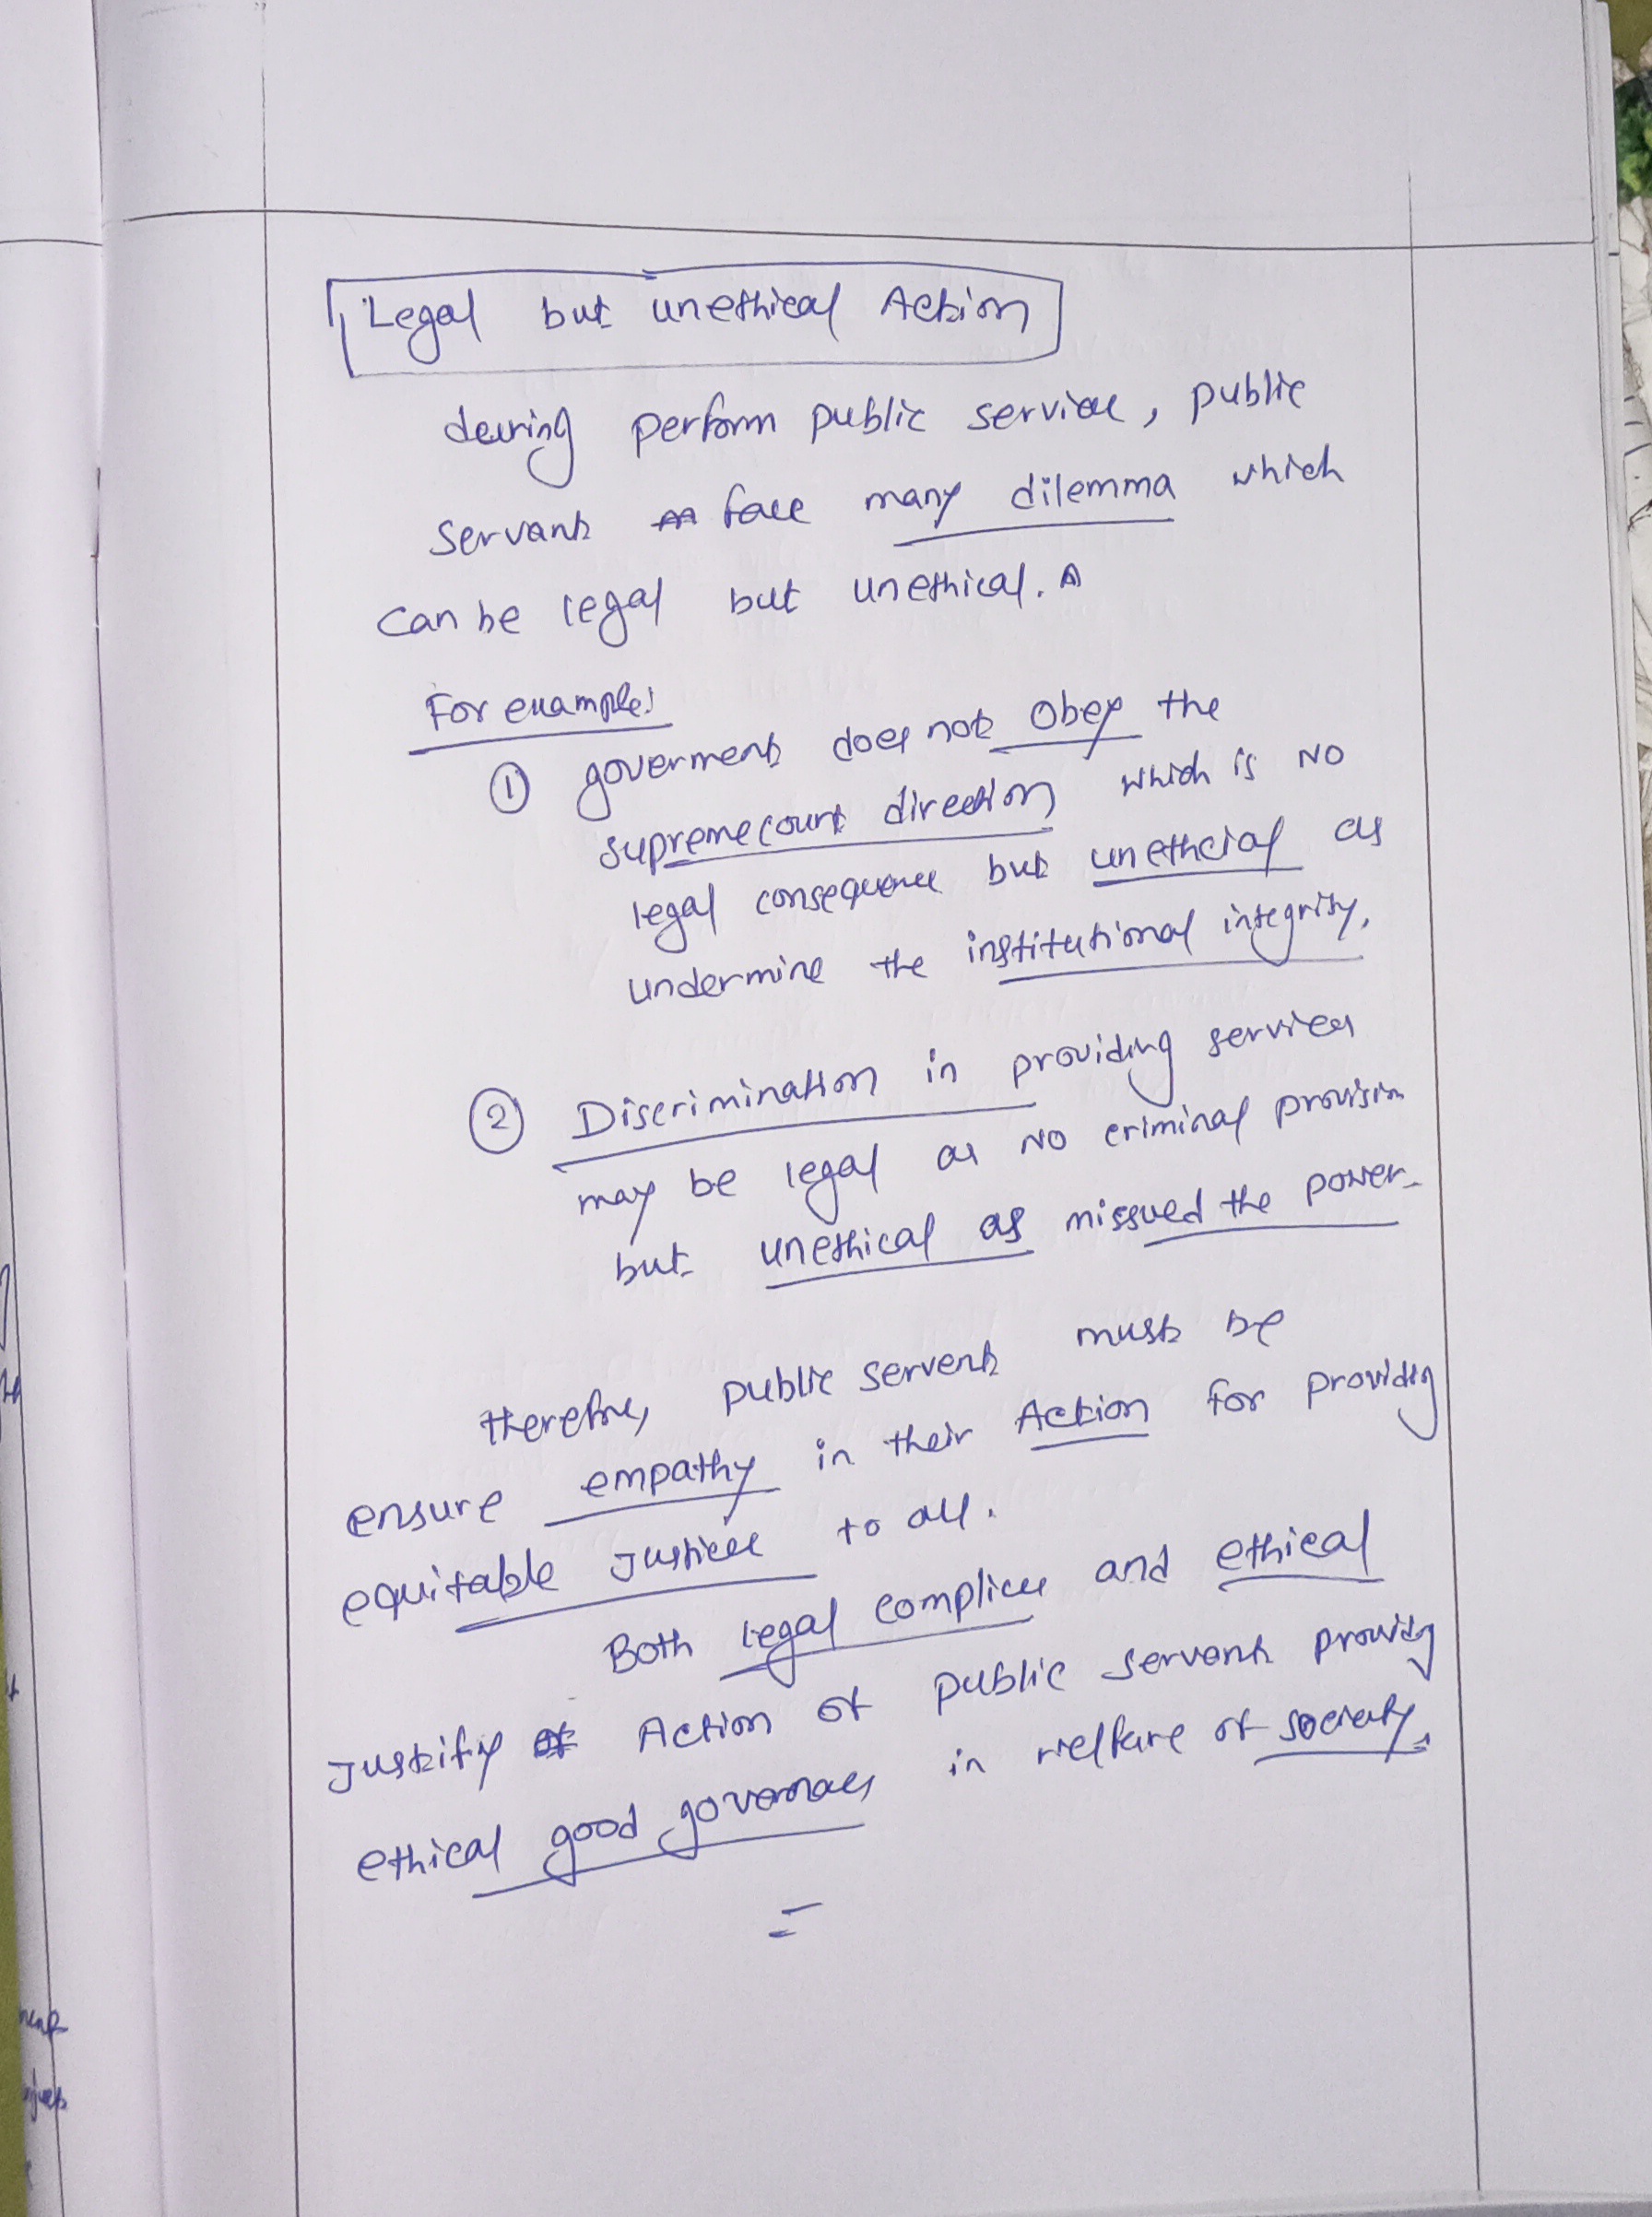 Legal but unethical Action
during perform public service, public
servants face many dilemma which
can be legal but unethical.
For example:
① goverment does not obey the
supreme court direction which is NO
legal consequence but unethcial as
undermine the institutional integrity.
② Discrimination in providing services
may be legal as NO criminal provision
but unethical as missued the power.
therefore, public servents must be
ensure empathy in their Action for providing
equitable Justice to all.
Both legal complice and ethical
Justify Action of public servants providing
ethical good governance in welfare of society.